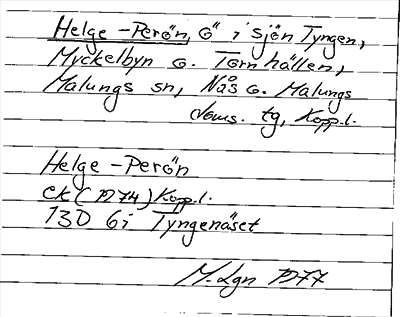 Helge-Perön, ö i sjön Tyngen,
Myckelbyn o. Tornhällen,
Malungs sn, Nås o. Malungs
doms. tg, Kopp.l.
Helge-Perön
ek (1974) Kopp.l.
13D 6i Tyngenäset
M.Lgn 1977